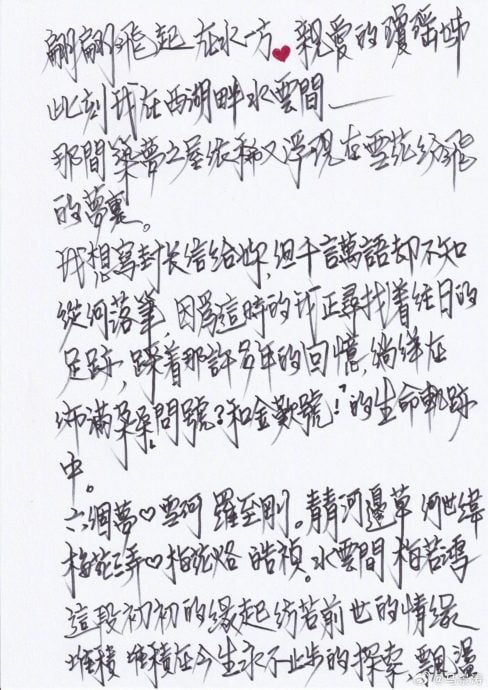 翩翩飛起 在水一方❤親愛的瓊瑤姊
此刻我在西湖畔水雲間——
那間築夢之屋依稀又浮現在雪花紛飛
的夢裏。
我想寫封长信给妳,但千言萬語却不知
從何落筆,因爲這時的我正尋找着往日的
足跡,踩着那許多年的回憶,徜徉在
佈滿朵朵問號?和金歎號!的生命軌跡
中。
六個夢♡雪珂 羅至剛。青青河邊草 何世緯
梅花三弄♡梅花烙 皓禎。水雲間 梅若鴻
這段初初的緣起彷若前世的情缘
堆積 堆積在今生永不止步的探索,飄盪
@马景涛